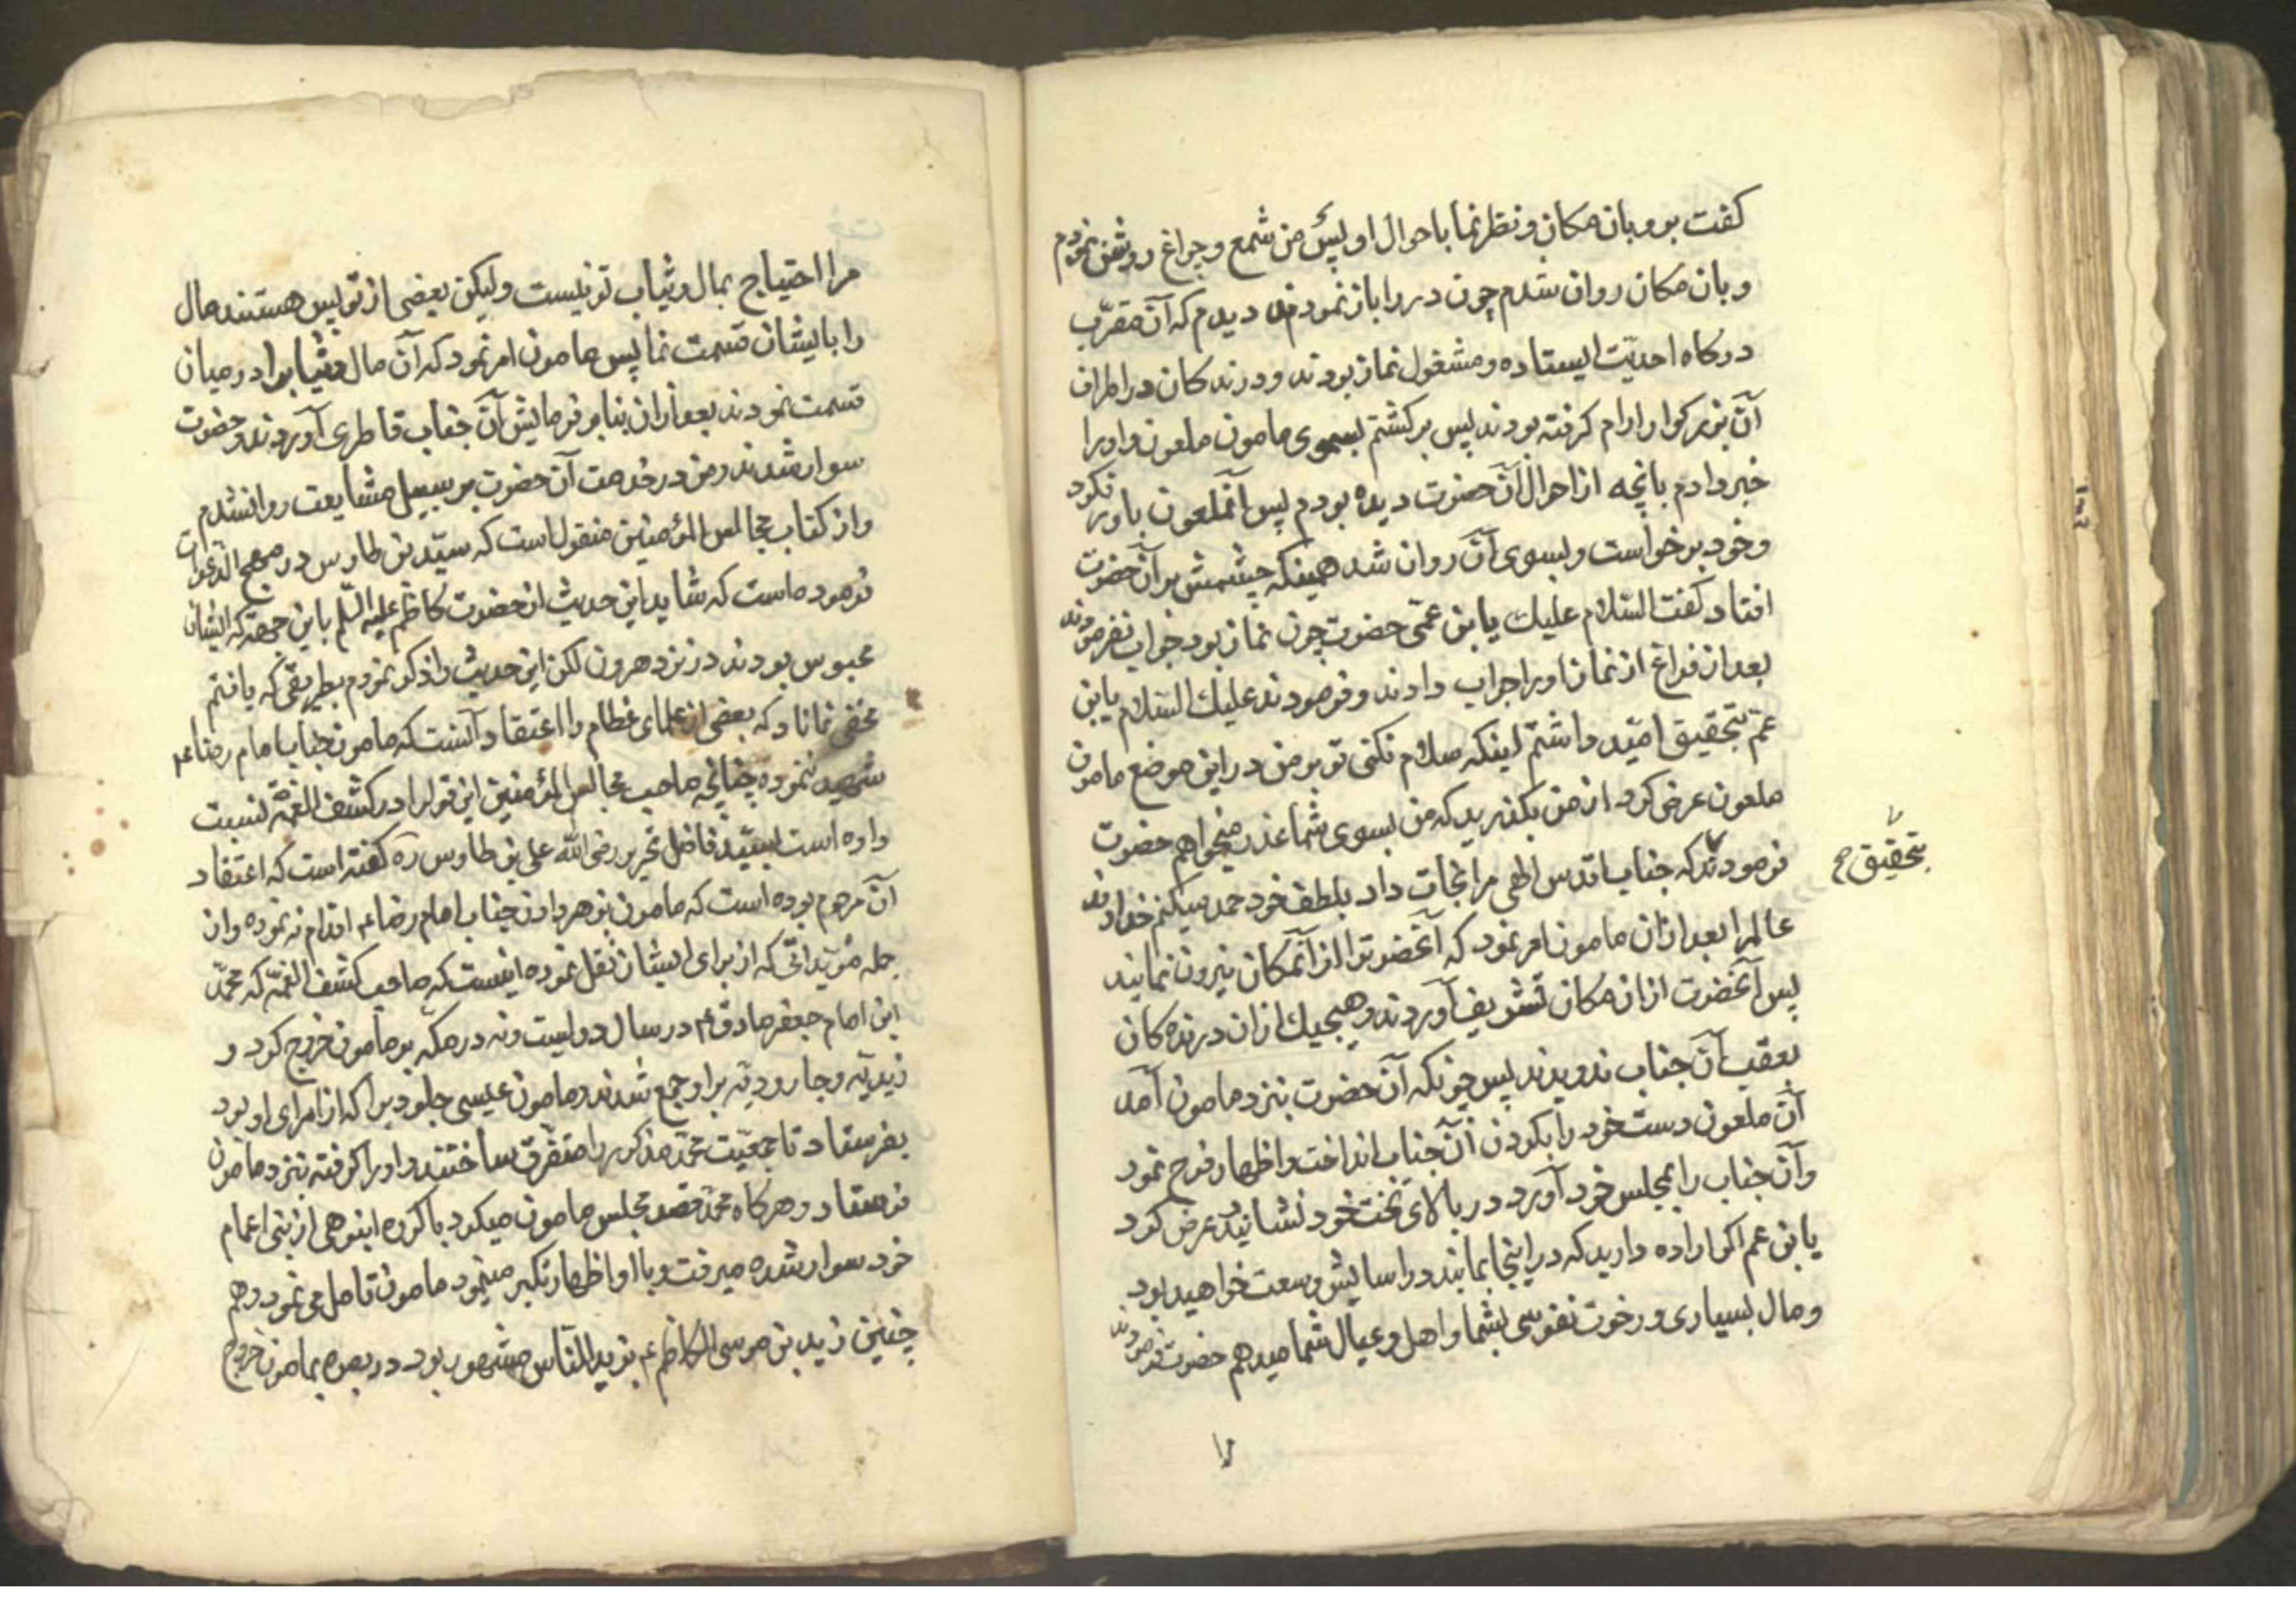 کفت برو بان مکان و نظر نما باحوال او پس من شمع و چراغ روشن نمودم
و بان مکان روان شدم چون در را باز نمودم دیدم که آن مقرّب
درکاه احدیّت ایستاده و مشغول نماز بودند و درندکان در اطراف
آن بزرکوار ارام کرفته بودند پس برکشتم بسوی مامون ملعون و اورا
خبر دادم بانچه از احوال آن حضرت دیده بودم پس آنملعون باور نکرد
و خود برخواست و بسوی آن روان شد همینکه چشمش بر آن حضرت
افتاد کفت السلام علیك یابن عمّی حضرت چون نماز بود جواب نفرمودند
بعد از فراغ از نماز اورا جواب دادند و فرمودند علیك السلام یابن
عمّ بتحقیق امّید داشتم اینکه سلام نکنی تو بر من در این موضع مامون
ملعون عرض کرد از من بکذرید که من بسوی شما عذر میخواهم حضرت
فرمودند که جناب اقدس الهی مرا نجات داد بلطف خود حمد میکنم خداوند
بتحقیق صح
عالمرا بعد ازان مامون امر نمود که آنحضرترا از آنمکان بیرون نمایند
پس آنحضرت ازان مکان تشریف آوردند و هیچیك ازان درنده کان
بعقب آن جناب ندویدند پس چونکه آن حضرت بنزد مامون آمد
آن ملعون دست خود را بکردن آن جناب انداخت و اظهار فرح نمود
و آن جناب را بمجلس خود آورد و در بالای تخت خود نشانید عرض کرد
یابن عم اکر اراده دارید که در اینجا بمانید در اسایش و وسعت خواهید بود
و مال بسیاری و رخوت نفوسی بشما و اهل و عیال شما میدهم حضرت فرمودند
مرا احتیاج بمال و ثیاب تو نیست ولیکن بعضی از قریش هستند مال
را بایشان قسمت نما پس مامون امر نمود که آن مال و ثیاب را در میان
قسمت نمودند بعد ازان بنابر فرمایش آن جناب قاطری آوردند و حضرت
سوار شدند و من در خدمت آن حضرت بر سبیل مشایعت روانشدم
و از کتاب مجالس المؤمنین منقول است که سیّد بن طاوس در مهج الدّعوات
فرموده است که شاید این حدیث از حضرت کاظم علیه السّلم باین جهة که ایشان
محبوس بودند در نزد هرون لکن این حدیث را ذکر نمودم بطریقی که یافتم
مخفی نماناد که بعضی از علمای عظام را اعتقاد آنست که مامون جناب امام رضا ع
شهید ننموده چنانچه صاحب مجالس المؤمنین این قول را در کشف الغمّة نسبت
داده است بسیّد فاضل نحریر رضی الله علی بن طاوس ره کفته است که اعتقاد
آن مرحوم بوده است که مامون بزهر دادن جناب امام رضا ع اقدام ننموده و از
جمله مؤیّداتی که از برای ایشان نقل نموده اینست که صاحب کشف الغمّه که محمّد
ابن امام جعفر صادق ع در سال دویست و نه در مکّه بر مامون خروج کرد و
زیدیّه و جارودیّه براو جمع شدند و مامون عیسی جلودیرا که از امرای او بود
بفرستاد تا جمعیّت محمّد مذکور را متفرّق ساختند و اورا کرفته بنزد مامون
فرستاد و هرکاه محمّد قصد مجلس مامون میکرد با کروه انبوهی از بنی اعمام
خود سوار شده میرفت و با او اظهار تکبر مینمود مامون تامل می نمود و هم
چنین زید بن موسی الکاظم ع بزید النّاس مشهور بود در بصره بمامون خروج